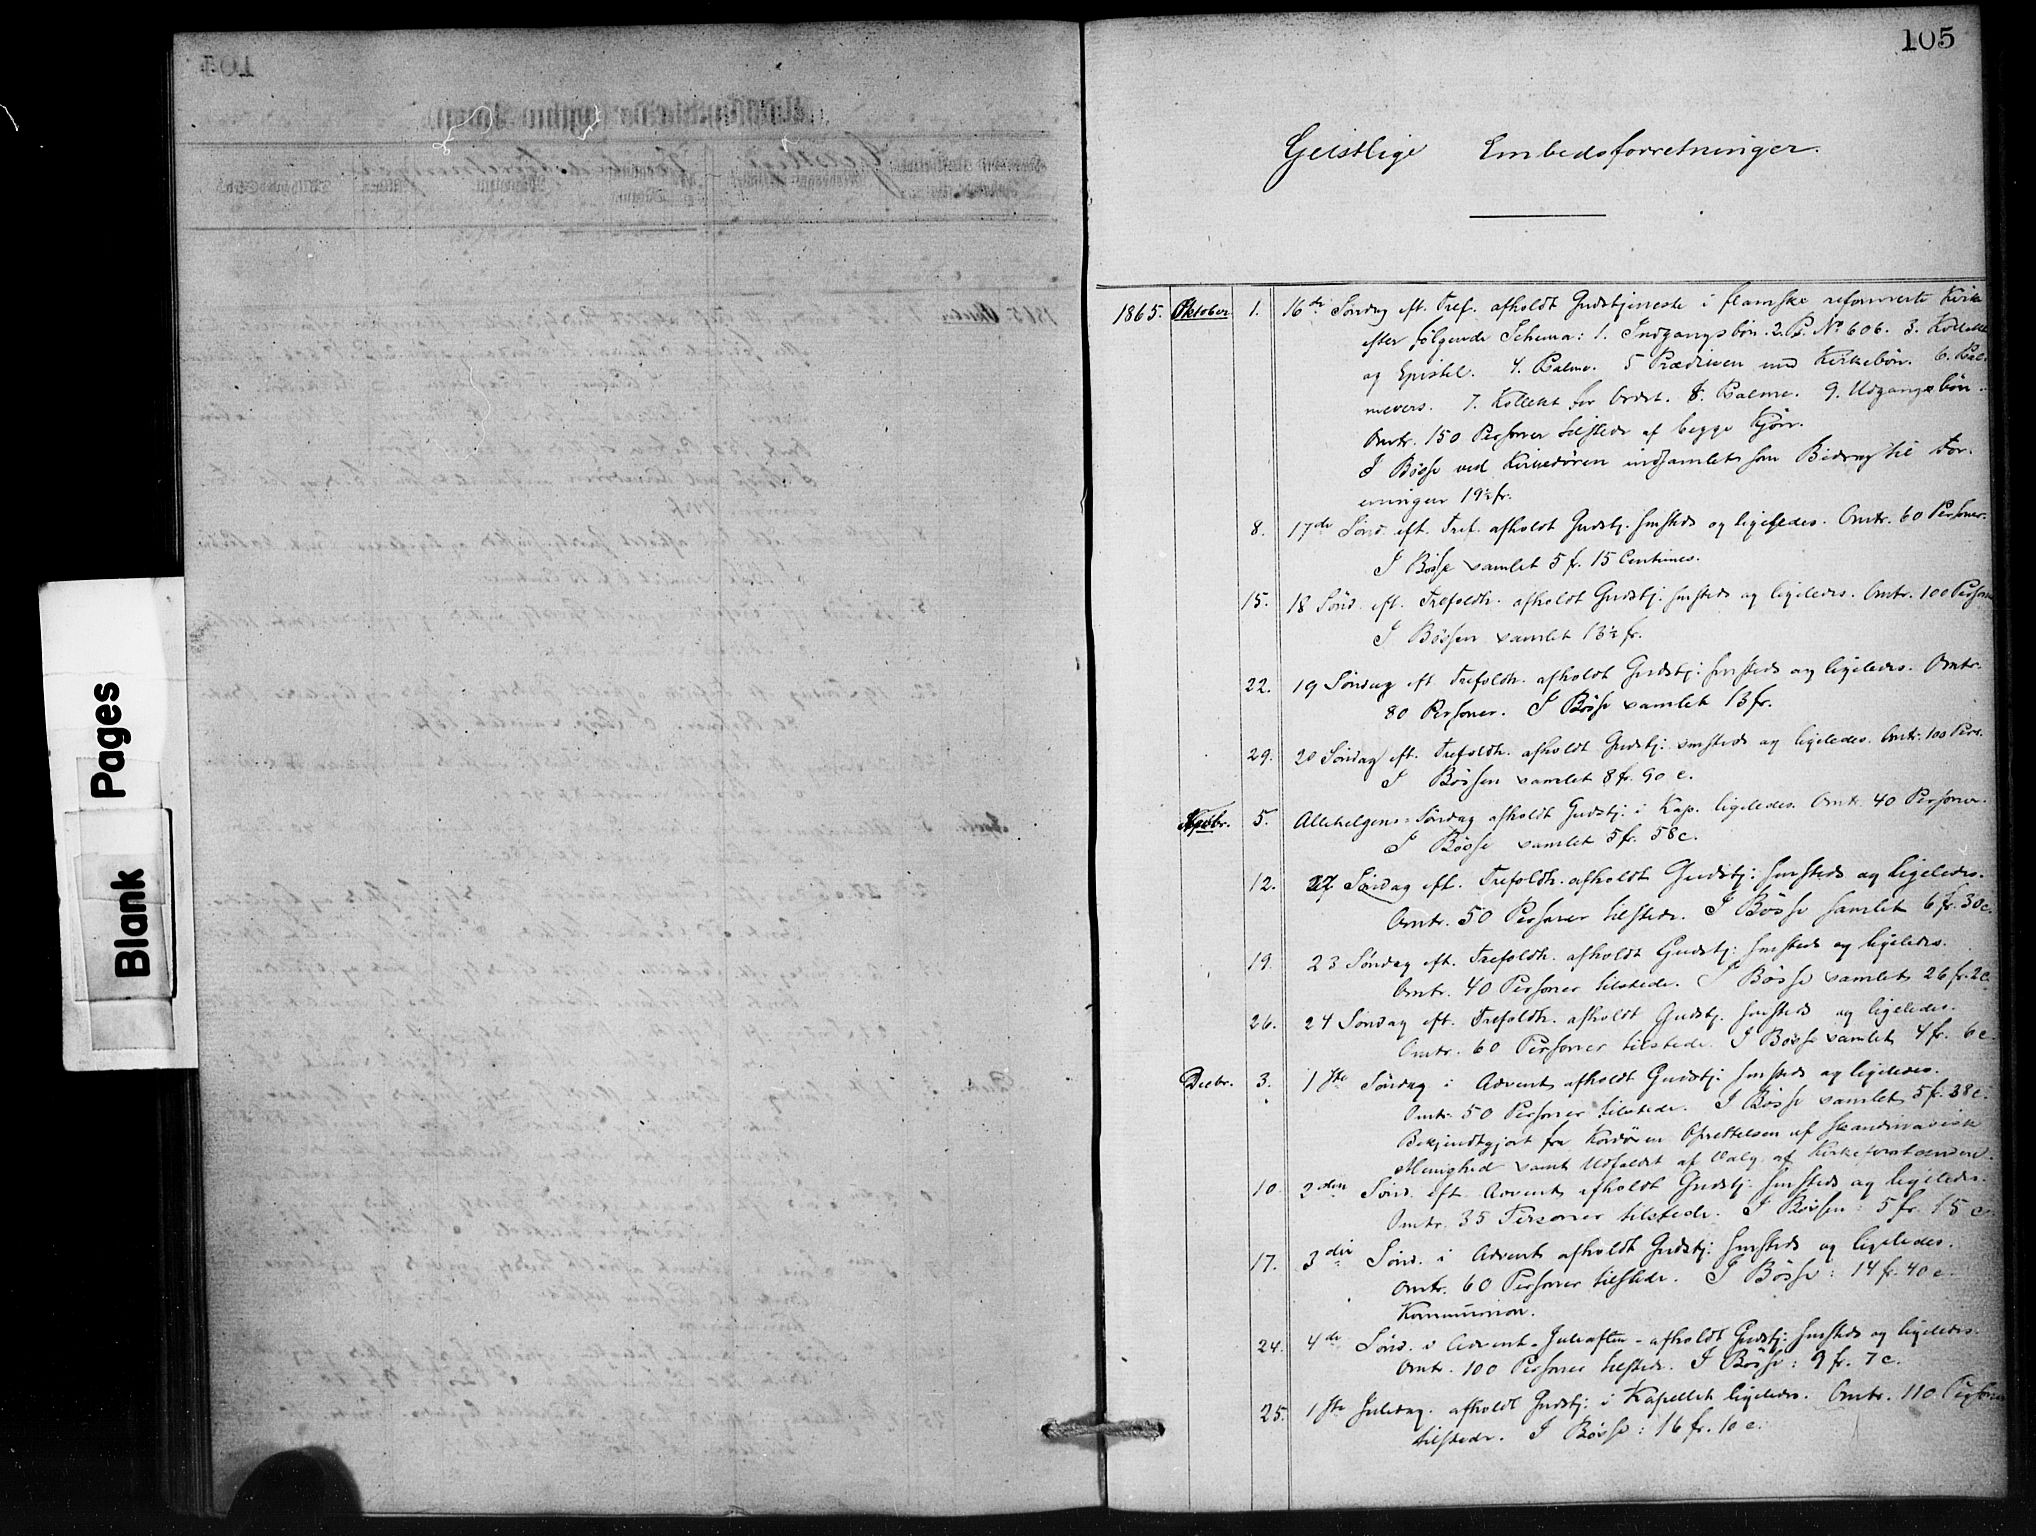 105
Geistlige Embedsforretninger.
1865. Oktober 1. 16de Søndag eft. Tref. afholdt Gudstjeneste i flamske reformerte Kirke
efter følgende Schema: 1. Indgangsbøn. 2. Ps. No 606. 3. Kollekt
og Epistel. 4. Psalme. 5 Prædiken med Kirkebøn. 6. Psal-
mevers. 7. Kollekt for Ordet. 8. Psalme. 9. Udgangsbøn.
Omtr. 150 Personer tilstede af begge Kjøn.
I Bøsse ved Kirkedøren indsamlet som Bidrag til For-
eningen 19½ fr.
8. 17de Sønd. eft. Tref. afholdt Gudstj. smsteds og ligeledes. Omtr. 60 Personer.
I Bøsse samlet 5 fr. 15 Centimes.
15. 18 Sønd. eft. Trefoldh. afholdt Gudstj: smsteds og ligeledes. Omtr. 100 Personer
I Bøssen samlet 13½ fr.
22. 19 Søndag eft. Trefoldh. afholdt Gudstj: smsteds og ligeledes. Omtr.
80 Personer. I Bøsse samlet 13 fr.
29. 20 Søndag eft. Trefoldh. afholdt Gudstj: smsteds og ligeledes. Omtr. 100 Pers.
I Bøssen samlet 8 fr. 90 c.
Novbr. 5. Allehelgens-Søndag afholdt Gudstj: i Kap. ligeledes. Omtr. 40 Personer.
I Bøsse samlet 5 fr. 58 c.
12. 22 Søndag eft. Trefoldh. afholdt Gudstj: smsteds og ligeledes.
Omtr. 50 Personer tilstede. I Bøsse samlet 6 fr. 30 c.
19. 23 Søndag eft. Trefoldh. afholdt Gudstj: smsteds og ligeledes.
Omtr. 40 Personer tilstede. I Bøsse samlet 26 fr. 2 c.
26. 24 Søndag eft. Trefoldh. afholdt Gudstj. smsteds og ligeledes.
Omtr. 60 Personer tilstede. I Bøsse samlet 4 fr. 6 c.
Decbr. 3. 1ste Søndag i Advent afholdt Gudstj: smsteds og ligeledes.
Omtr. 50 Personer tilstede. I Bøsse samlet 5 fr. 38 c.
Bekjendtgjort fra Kordøren Oprettelsen af skandinavisk
Menighed samt Udfaldet af Valg af Kirkeforstandere.
10. 2den Sønd. eft. Advent afholdt Gudstj: smsteds og ligeledes.
Omtr. 35 Personer tilstede. I Bøssen: 5 fr. 15 c.
17. 3die Sønd. i Advent afholdt Gudstj: smsteds og ligeledes.
Omtr. 60 Personer tilstede. I Bøsse: 14 fr. 40 c.
Kommunion.
24. 4de Sønd. i Advent - Juleaften - afholdt Gudstj: smsteds og ligeledes.
Omtr. 100 Personer tilstede. I Bøsse: 9 fr. 7 c.
25. 1ste Juledag. afholdt Gudstj: i Kapellet ligeledes. Omtr. 110 Personer
tilstede. I Bøsse: 16 fr. 10 c.
Blank Pages